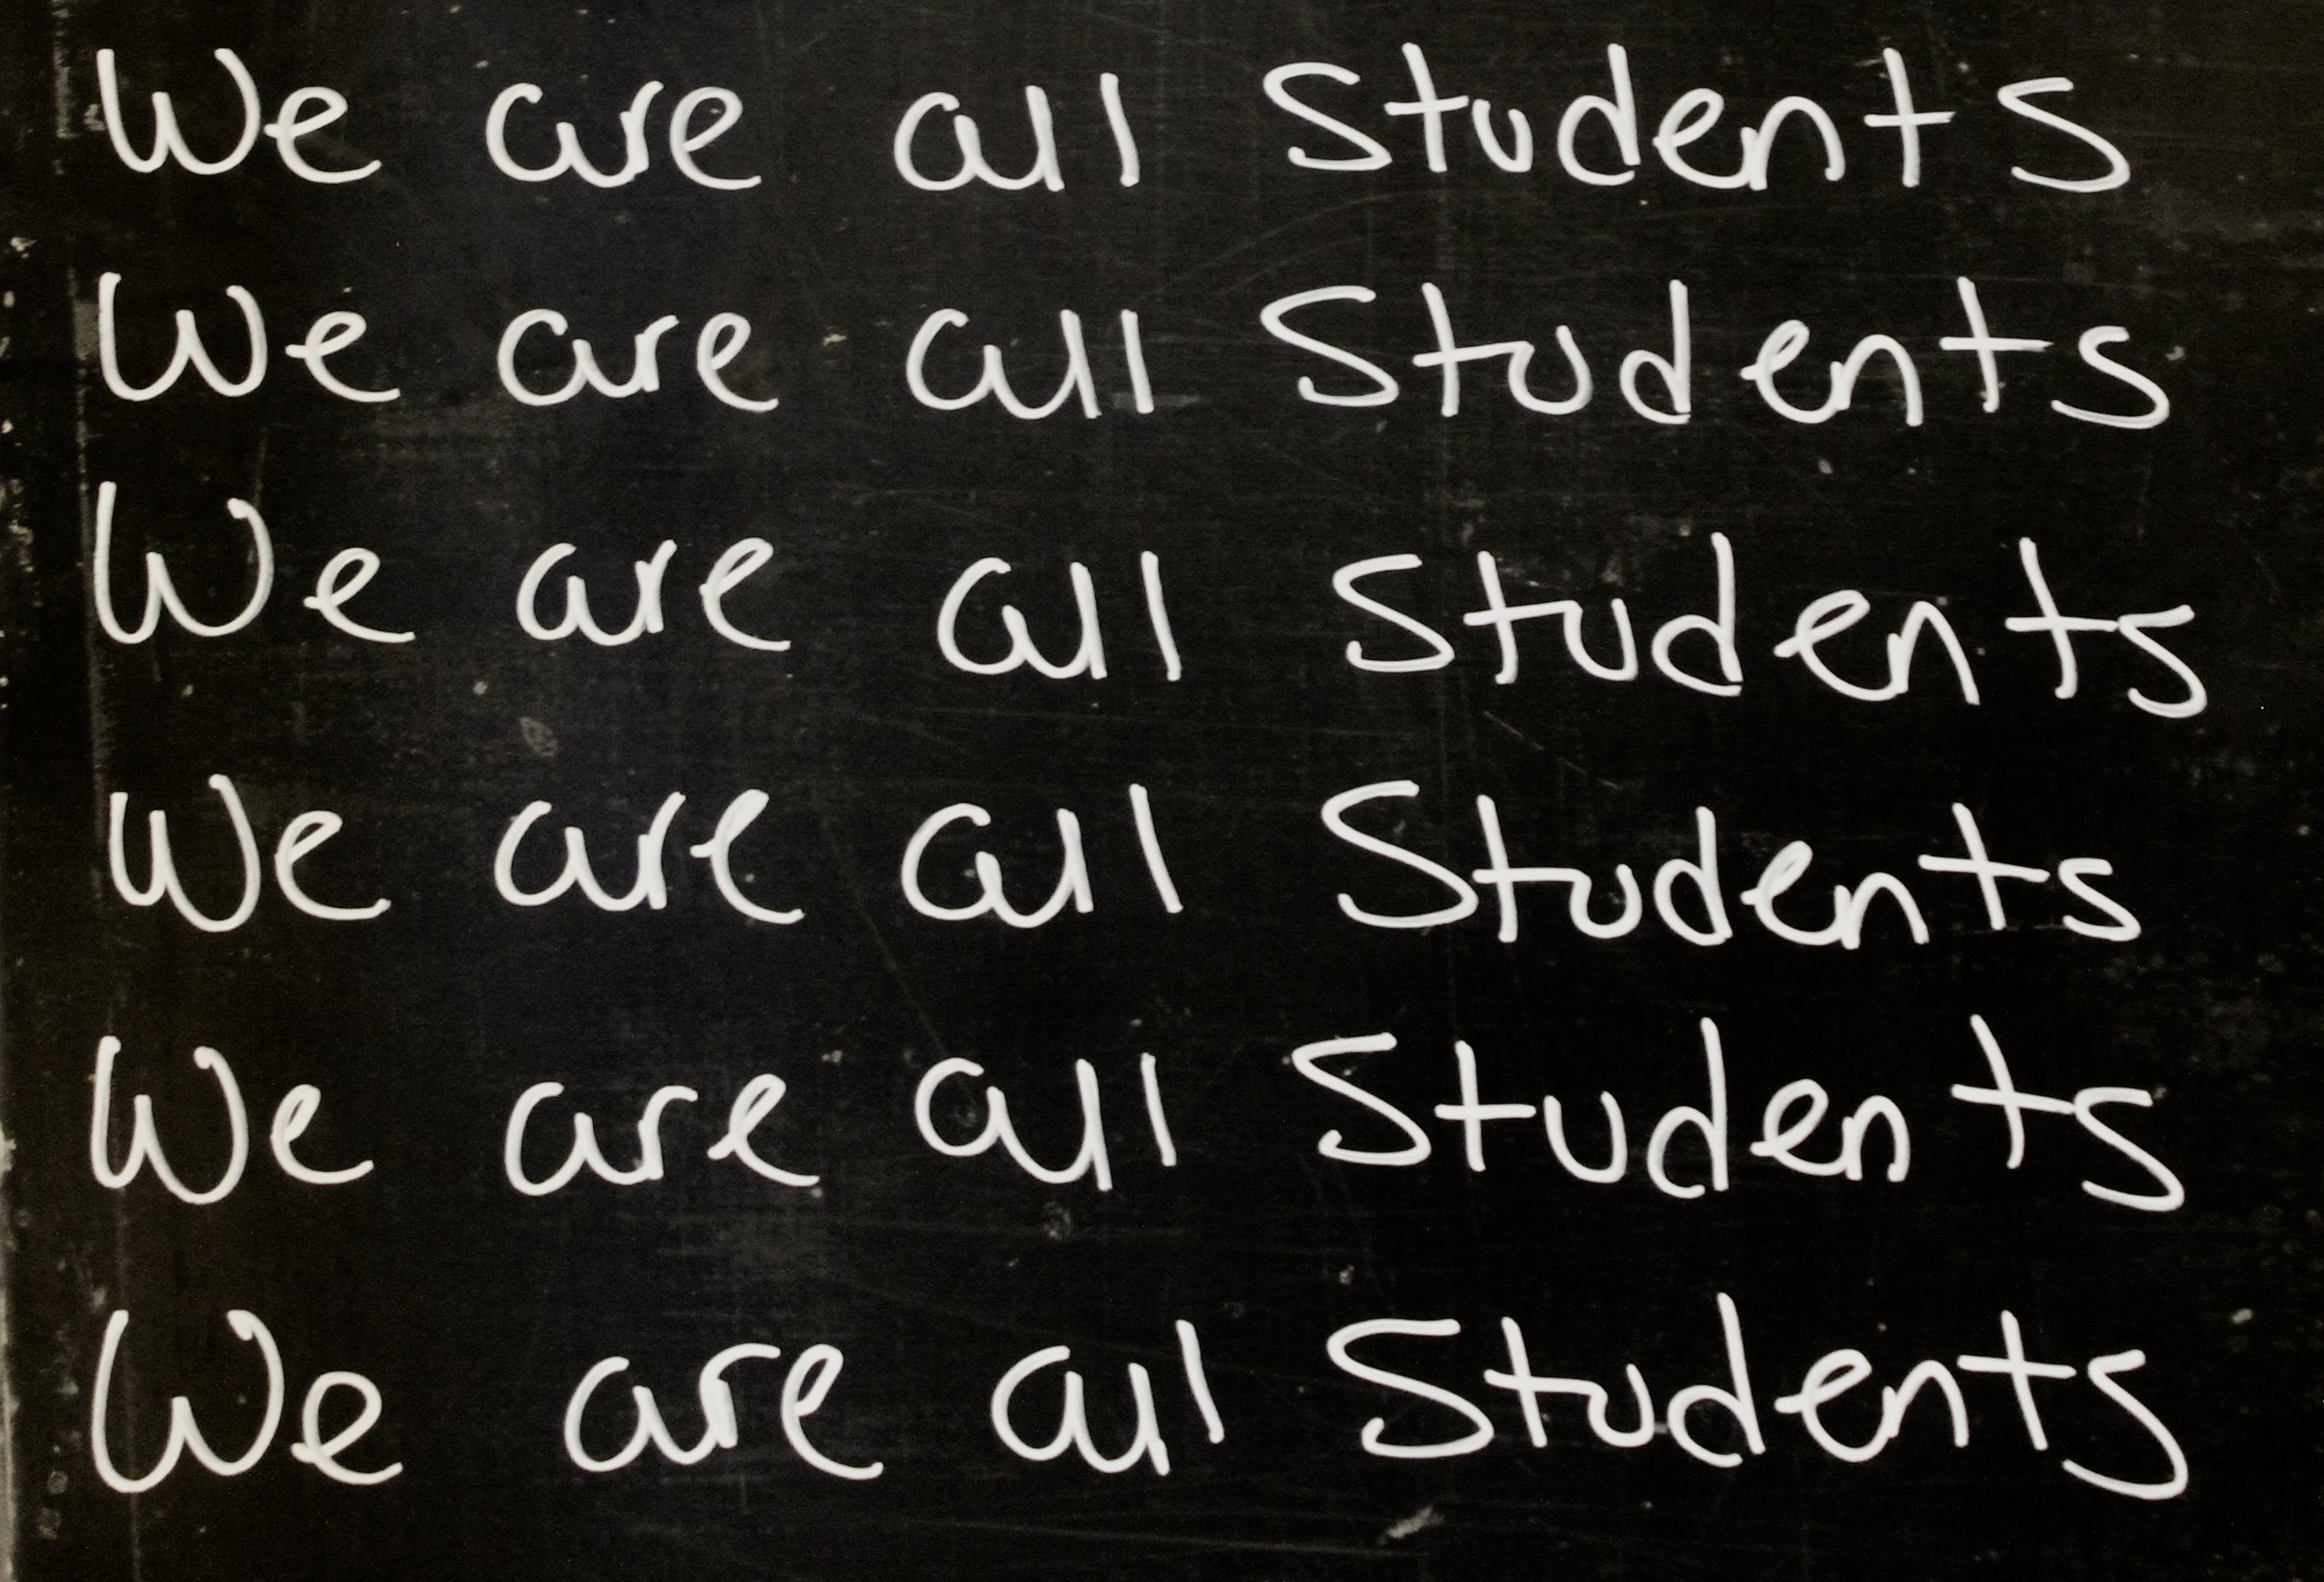 We are all Students
We are all Students
We are all Students
We are all Students
We are all Students
We are all Students